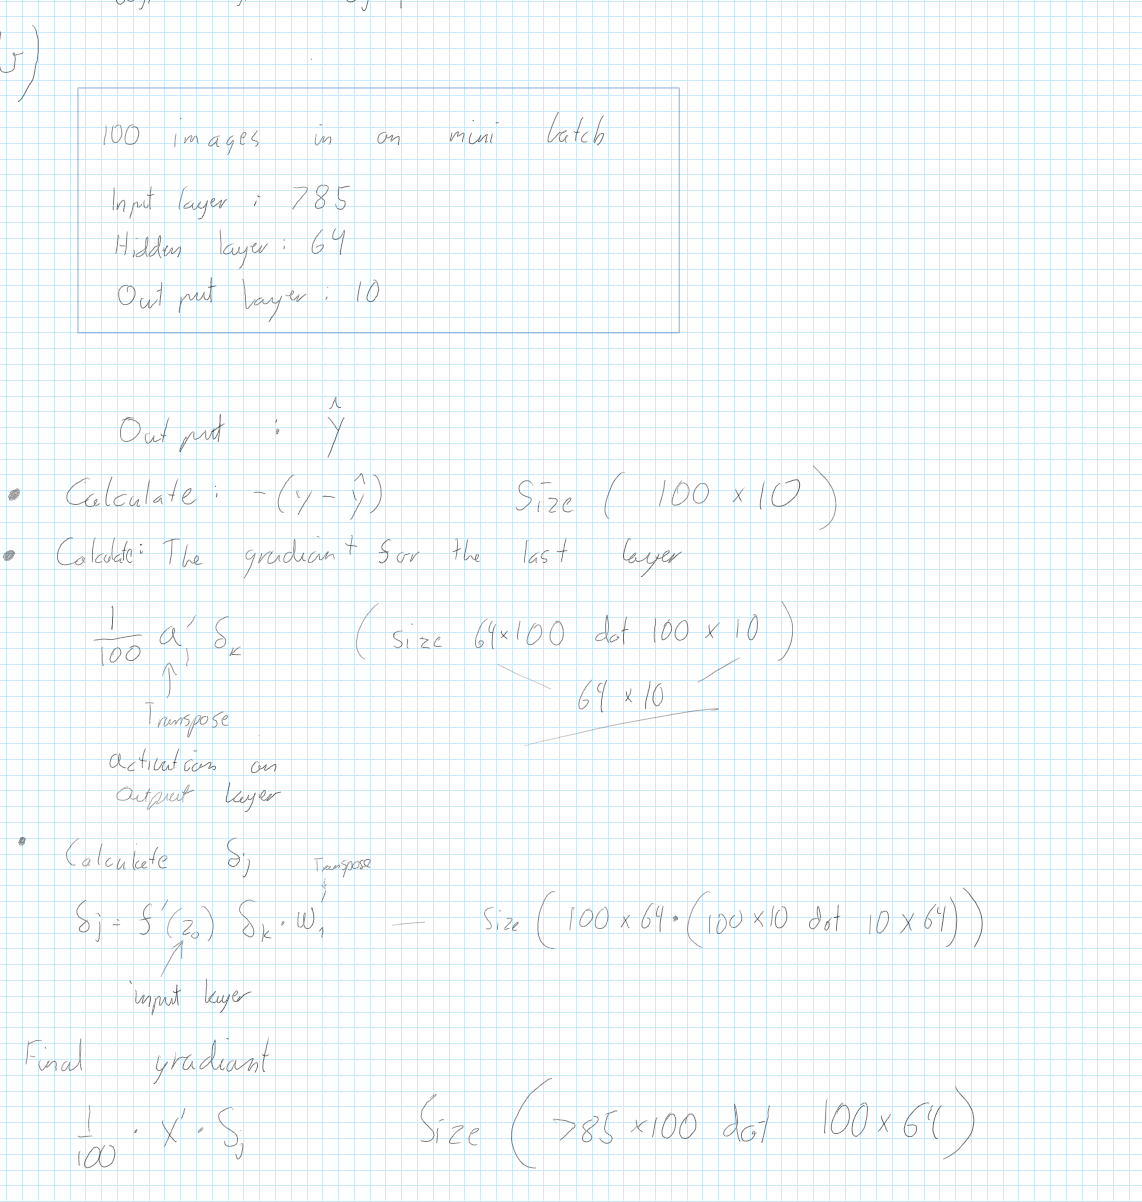 100 images in an mini batch
Input layer : 785
Hidden layer : 64
Output layer : 10
Output : ŷ
• Calculate : -(y - ŷ) Size ( 100 x 10 )
• Calculate: The gradiant for the last layer
1/100 a₁' δₖ ( size 64x100 dot 100 x 10 )
64 x 10
↑
Transpose
activation on
output layer
• Calculate δⱼ Transpose
δⱼ = f'(z₀) δₖ · w₁' — Size (100 x 64 · (100 x 10 dot 10 x 64))
input layer
Final gradiant
1/100 · X' · δⱼ Size ( 785 x 100 dot 100 x 64 )